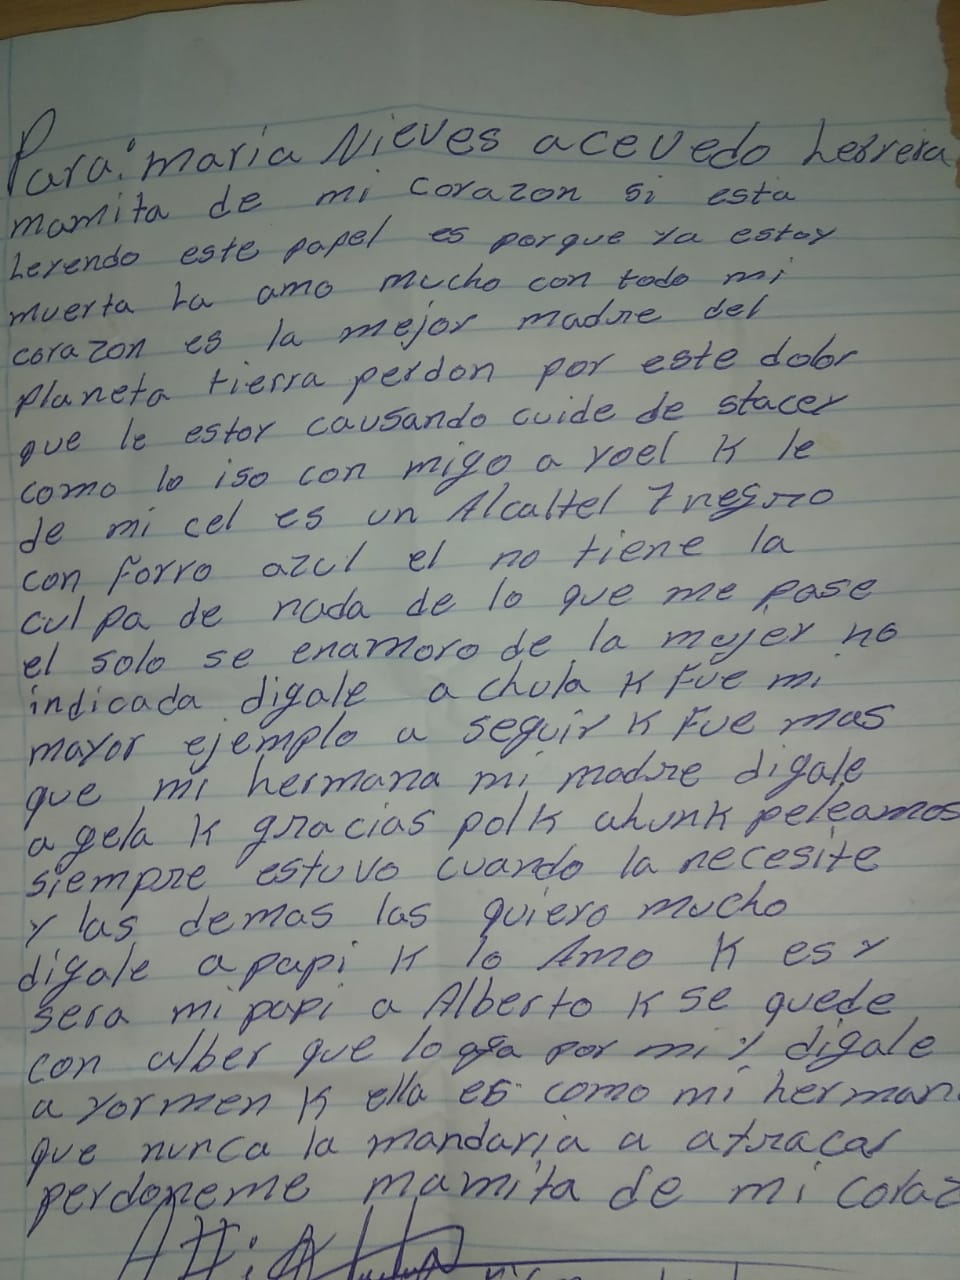 Para: maria Nieves acevedo herrera
mamita de mi corazon si esta
leyendo este papel es porque ya estoy
muerta la amo mucho con todo mi
corazon es la mejor madre del
planeta tierra perdon por este dolor
que le estoy causando cuide de stacey
como lo iso con migo a yoel k le
de mi cel es un Alcaltel 7 negro
con forro azul el no tiene la
culpa de nada de lo que me pase
el solo se enamoro de la mujer no
indicada digale a chula k fue mi
mayor ejemplo a seguir k fue mas
que mi hermana mi madre digale
a gela k gracias polk ahunk peleamos
siempre estuvo cuando la necesite
y las demas las quiero mucho
digale a papi k lo Amo k es y
sera mi papi a Alberto k se quede
con alber que lo por mi y digale
a yormen k ella es como mi herman
que nunca la mandaria a atracar
perdoneme mamita de mi coraz